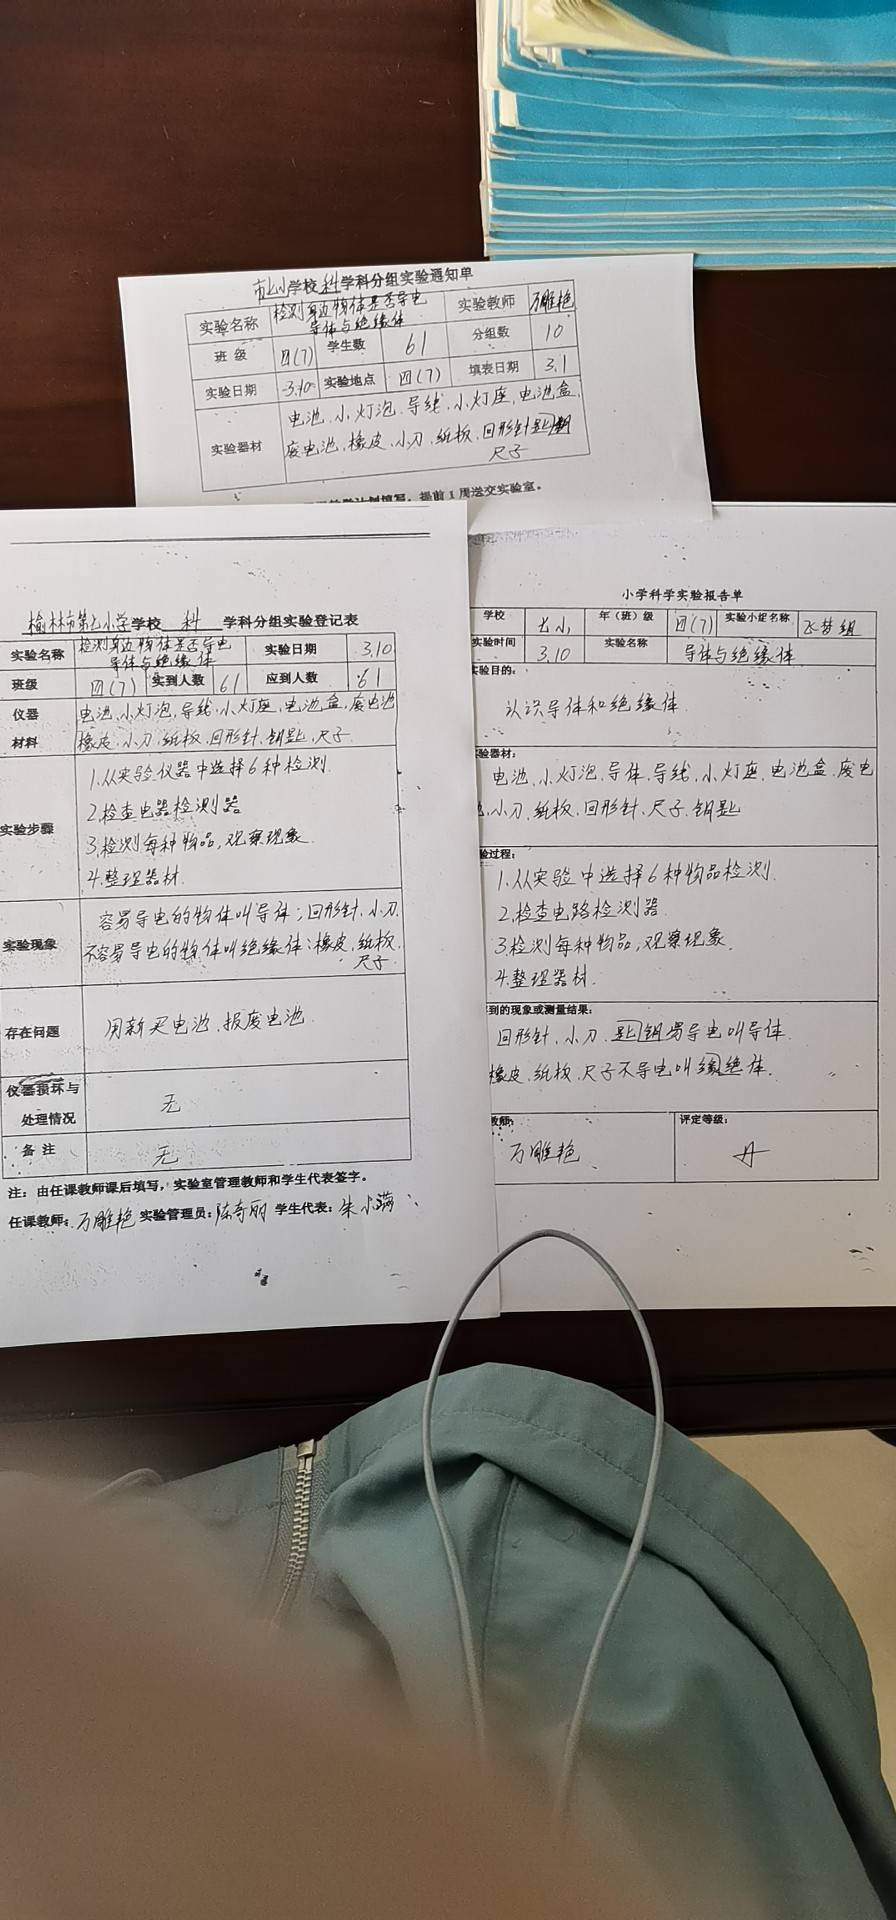 市七小学校科学科分组实验通知单
实验名称 检测身边物体是否导电 导体与绝缘体 实验教师 万雕艳
班级 四(7) 学生数 61 分组数 10
实验日期 3.10 实验地点 四(7) 填表日期 3.1
实验器材
电池、小灯泡、导线、小灯座、电池盒、
废电池、橡皮、小刀、纸板、回形针 匙钥
尺子
填写，提前1周送交实验室。
榆林市第七小学学校 科 学科分组实验登记表
实验名称 检测身边物体是否导电 导体与绝缘体 实验日期 3.10
班级 四(7) 实到人数 61 应到人数 61
仪器 电池、小灯泡、导线、小灯座、电池盒、废电池
材料 橡皮、小刀、纸板、回形针、钥匙、尺子
实验步骤
1.从实验仪器中选择6种检测
2.检查电器检测器
3.检测每种物品,观察现象
4.整理器材
实验现象
容易导电的物体叫导体:回形针、小刀
不容易导电的物体叫绝缘体:橡皮、纸板、
尺子
存在问题 用新买电池、报废电池
仪器损坏与
处理情况 无
备注 无
注：由任课教师课后填写，实验室管理教师和学生代表签字。
任课教师：万雕艳 实验管理员：陈奇丽 学生代表：朱小满
小学科学实验报告单
学校 七小 年（班）级 四(7) 实验小组名称 飞梦组
实验时间 3.10 实验名称 导体与绝缘体
实验目的：
认识导体和绝缘体
验器材：
电池、小灯泡、导体、导线、小灯座、电池盒、废电
小刀、纸板、回形针、尺子、钥匙
验过程：
1.从实验中选择6种物品检测
2.检查电路检测器
3.检测每种物品,观察现象。
4.整理器材.
到的现象或测量结果：
回形针、小刀、匙钥易导电叫导体
橡皮、纸板、尺子不导电叫缘绝体.
教师： 评定等级：
万雕艳